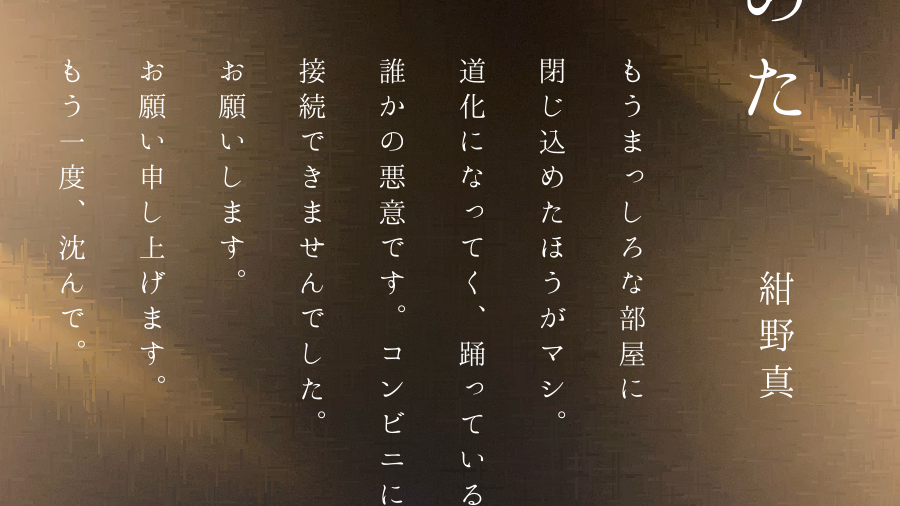 のた
紺野真
もうまっしろな部屋に
閉じ込めたほうがマシ。
道化になってく、踊っている
誰かの悪意です。コンビニに
接続できませんでした。
お願いします。
お願い申し上げます。
もう一度、沈んで。